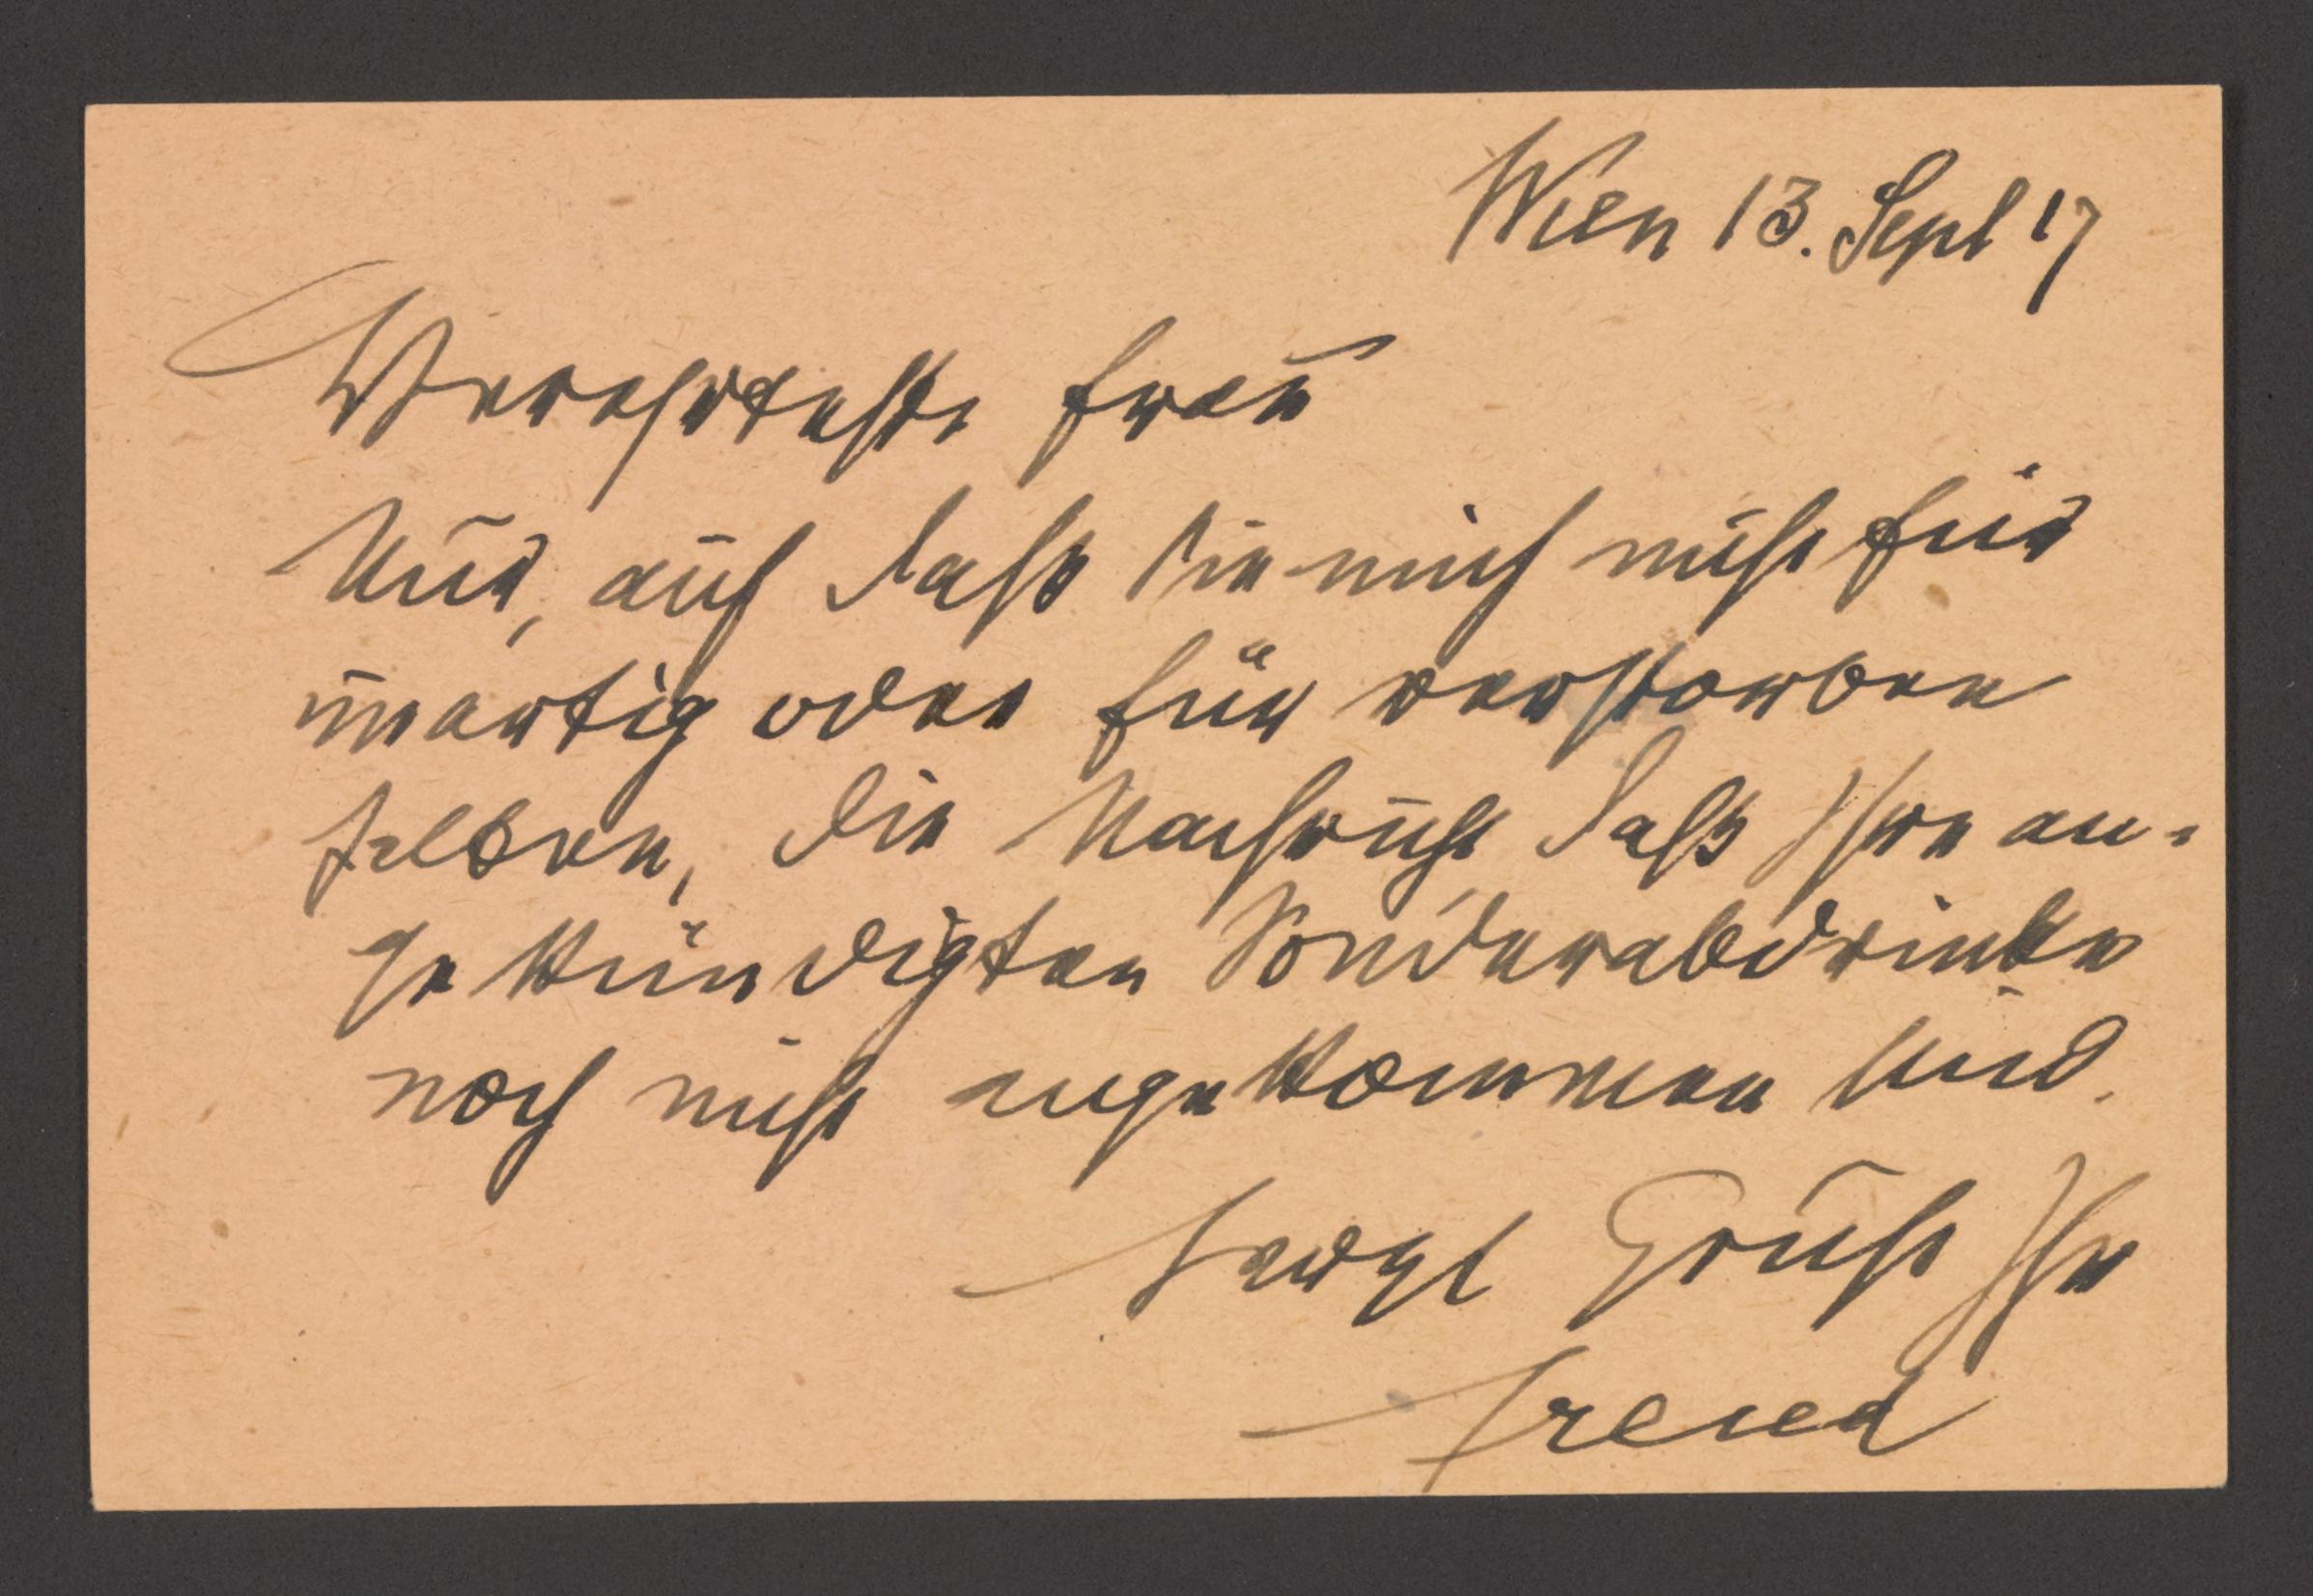 Wien 13. Sept 17
Verehrteste Frau
Nur, auf daß Sie mich nicht für
unartig oder für verstorben
halten, die Nachricht daß Ihre an-
gekündigten Sonderabdrücke
noch nicht angekommen sind.
Herzl Gruß Ihr
Freud